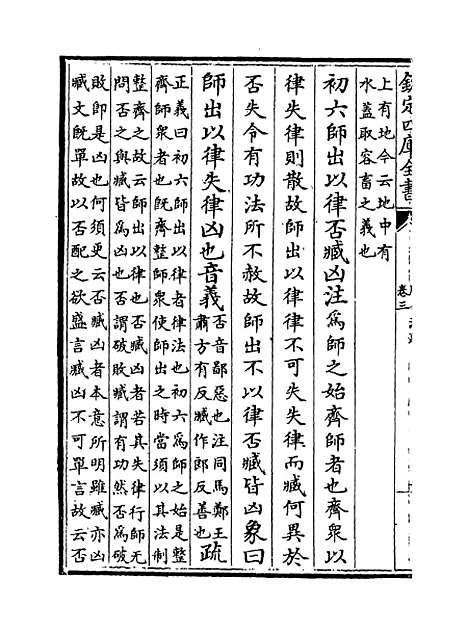 欽定四庫全書
卷三
上有地今云地中有
水蓋取容畜之義也
初六師出以律否臧凶注為師之始齊師者也齊衆以
律失律則散故師出以律律不可失失律而臧何異於
否失令有功法所不赦故師出不以律否臧皆凶象曰
師出以律失律凶也音義
否音鄙惡也注同馬鄭王
肅方有反臧作郎反善也
疏
正義曰初六師出以律者律法也初六為師之始是整
齊師衆者也既齊整師衆使師出之時當須以其法制
整齊之故云師出以律也否臧凶者若其失律行師无
問否之與臧皆為凶也否謂破敗臧謂有功然否為破
敗即是凶也何須更云否臧凶者本意所明雖臧亦凶
臧文既單故以否配之欲盛言臧凶不可單言故云否